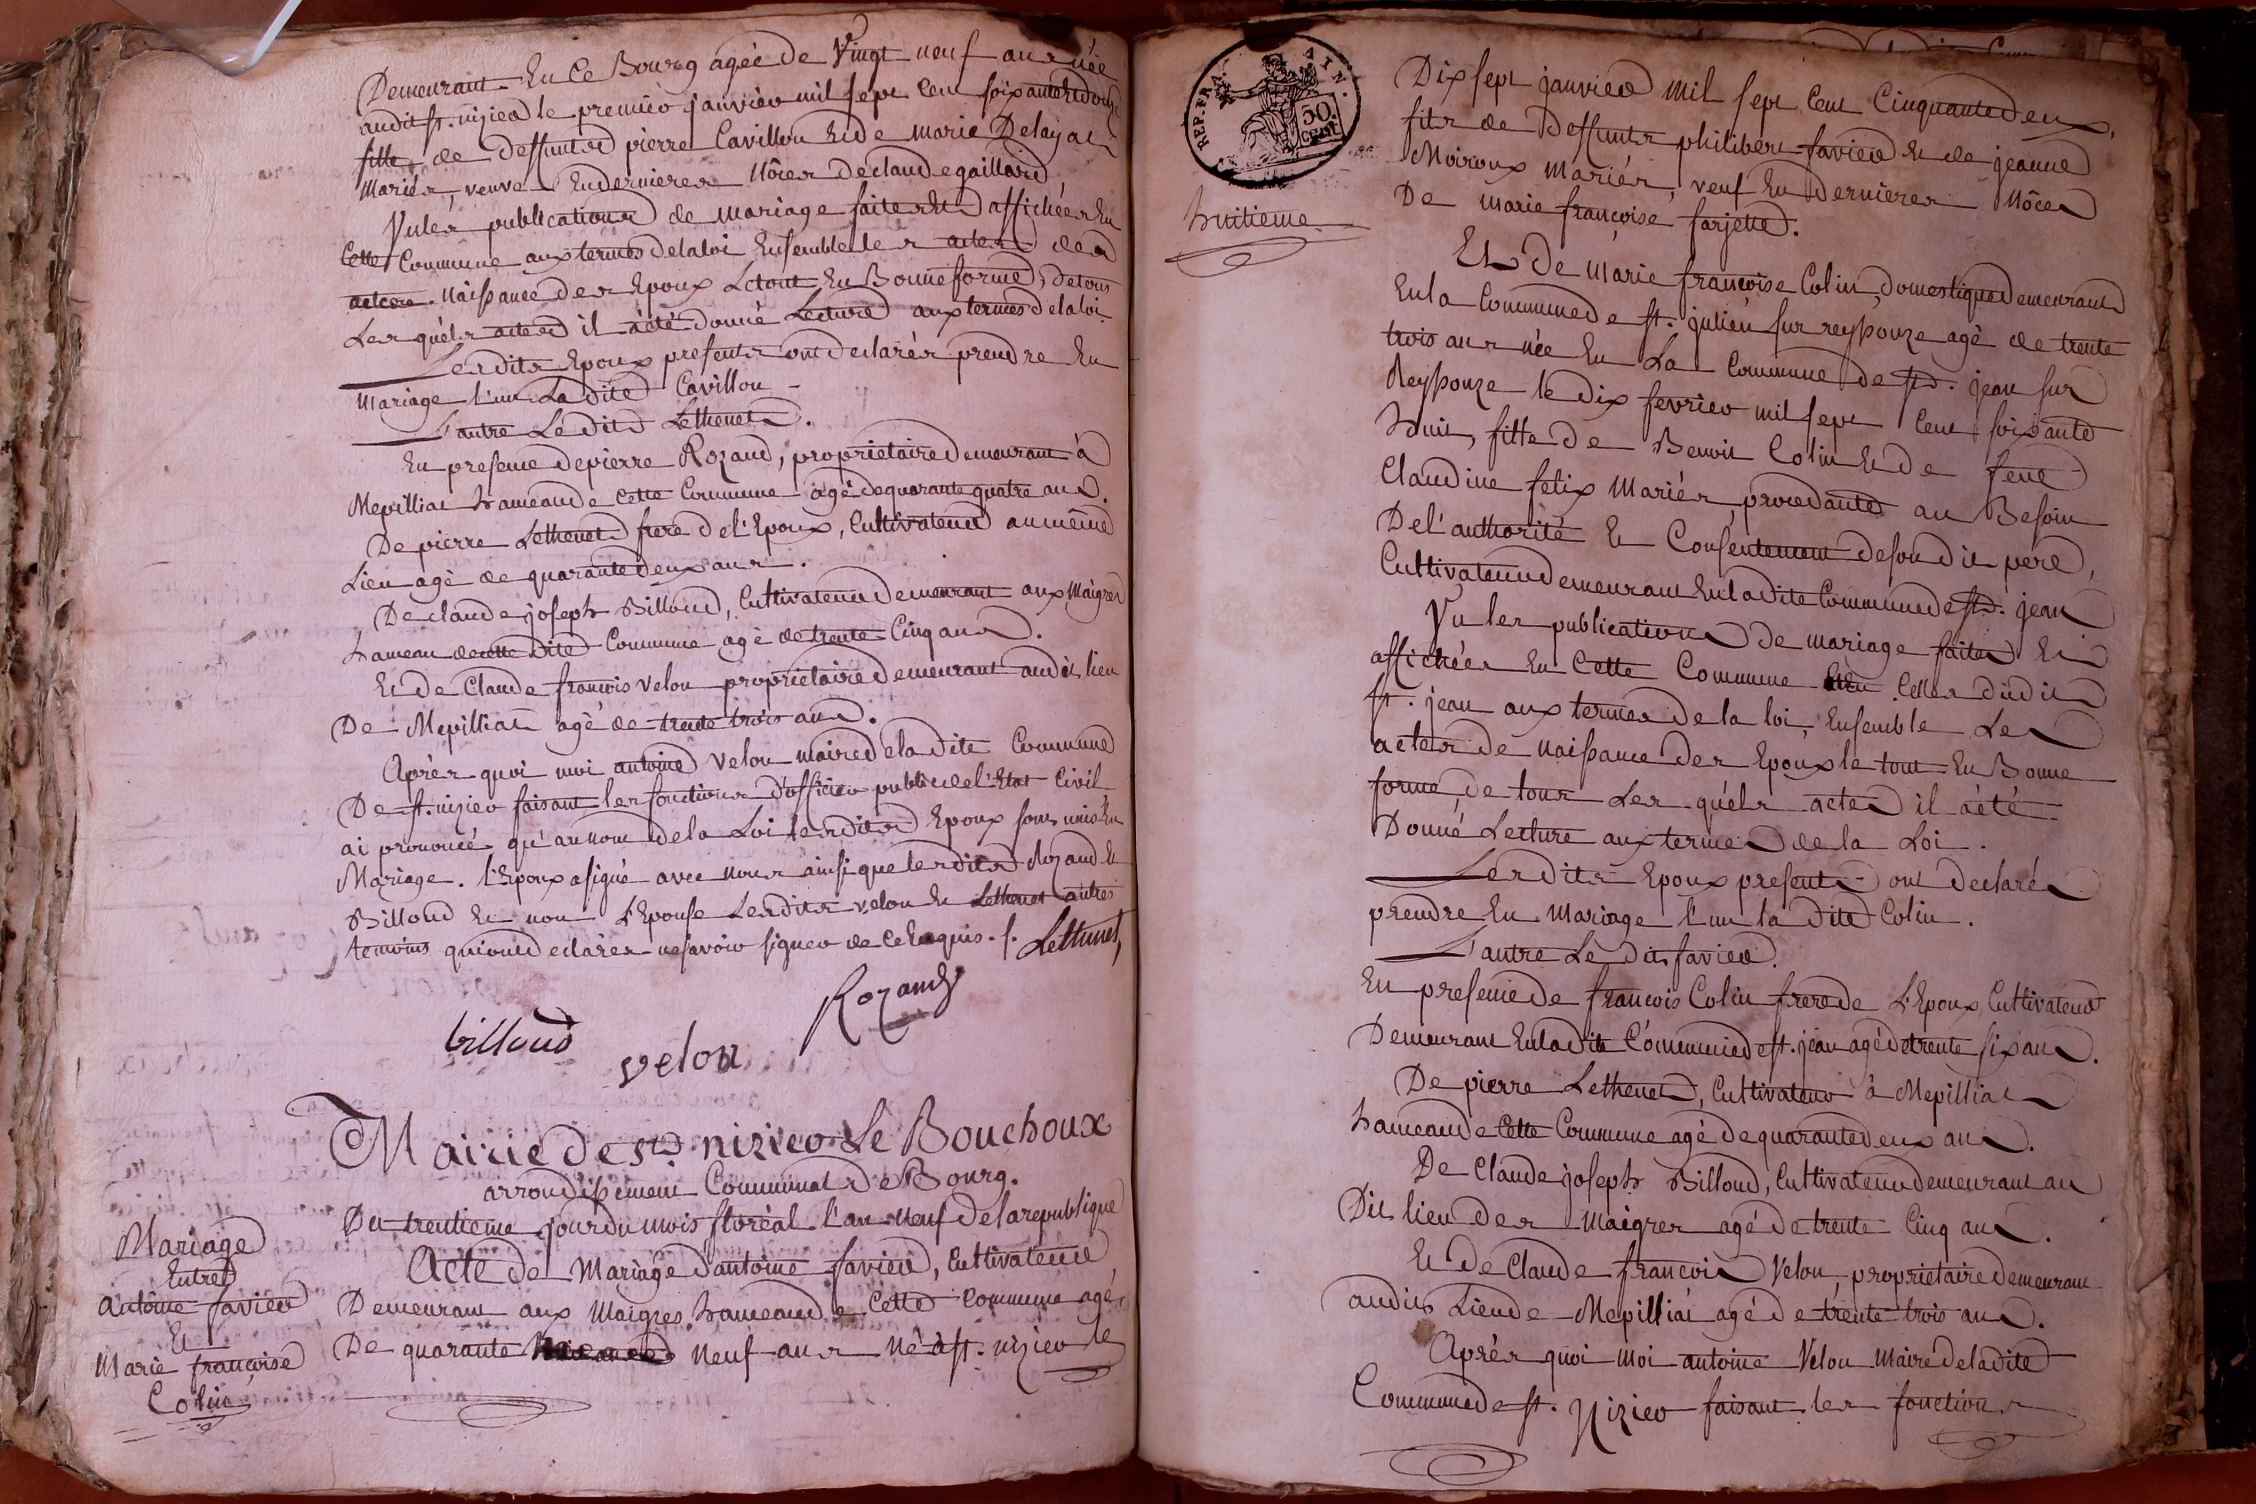 Demeurant En Ce Bourg agée de Vingt neuf ans née
audit st. nizier le premier janvier mil sept cent soixante et douze
fille de deffunts pierre Cavillon Et de marie Delaya
mariés, veuve En dernieres Nôces de claude gaillard
Vu les publications de mariage faites Et affichées En
Cette Commune aux termes de la loi Ensemble les actes de
naissance des Epoux Le tout En Bonne forme, de tous
Les quéls actes il áété donné Lecture aux termes de la loi.
Lesdits Epoux presents ont declarés prendre En
Mariage l'un La dite Cavillon
L'autre Le dit Lethenet.
En presence de pierre Rozand, proprietaire demeurant à
Mepilliat hameau de Cette Commune agé de quarante quatre ans.
De pierre Lethenet frere de l'Epoux, Cultivateur au même
Lieu agé de quarante deux ans.
De claude joseph Billoud, Cultivateur demeurant aux Maigres
hameau de cette dite Commune agé de trente Cinq ans.
Et de Claude francois velon proprietaire demeurant audit lieu
De Mepilliat agé de trente trois ans.
Aprés quoi moi antoine velon maire de la dite Commune
De st. nizier faisant les fonctions d'officier public de l'Etat Civil
ai prononcé qu'au nom de la Loi lesdits Epoux sont unis En
Mariage. l'Epoux a signé avec nous ainsi que lesdits Rozand Et
Billoud Et non L'Epouse Lesdits velon Et Lethenet autres
temoins qui ont declarés ne savoir signer de Ce Enquis. f. Lethenet,
Rozand
billoud
velon
Mairie de st. nizier Le Bouchoux
arrondissement Communal De Bourg.
Du trentieme jour du mois floréal l'an neuf de la republique
Mariage
Entre
Antoine favier
Et
Marie françoise
Colin
Acte de Mariage d'antoine favier, Cultivateur
Demeurant aux Maigres hameau de Cette Commune agé
De quarante neuf ans Né à st. nizier le
REP. FRA. AIN.
50.
CENT.
huitieme
Dix sept janvier mil sept Cent Cinquante deux,
fils de Deffunts philibert favier Et de jeanne
Moiroux mariés, veuf En dernieres Nôces
De marie françoise farjette.
Et De Marie françoise Colin, domestique demeurant
En la Commune de st. julien sur reyssouze agé de trente
trois ans née En La Commune de st. jean sur
Reyssouze le dix fevrier mil sept Cent soixante
huit, fille de Benoit Colin Et de feue
Claudine felix Mariés, procedante au Besoin
De l'authorité Et Consentement de son dit pere,
Cultivateur demeurant En la dite Commune de st. jean
Vu les publications de mariage faites Et
affichées En Cette Commune Celles dudit
st. jean aux termes de la loi, Ensemble Les
actes de naissance des Epoux le tout En Bonne
forme, de tous Les quéls actes il áété
Donné Lecture aux termes de la Loi.
Lesdits Epoux presents ont declarés
prendre En Mariage l'un la dite Colin.
L'autre Le dit favier.
En presence de francois Colin frere de L'Epoux, Cultivateur
Demeurant En la dite Commune de st. jean agé de trente six ans.
De pierre Lethenet, Cultivateur à Mepilliat
hameau de Cette Commune agé de quarante deux ans.
De Claude joseph Billoud, Cultivateur demeurant au
Dit lieu des Maigres agé de trente Cinq ans.
Et de Claude francois Velon, proprietaire demeurant
audit Lieu de Mepilliat agé de trente trois ans.
Aprés quoi moi antoine Velon Maire de la dite
Commune de st. Nizier faisant les fonctions